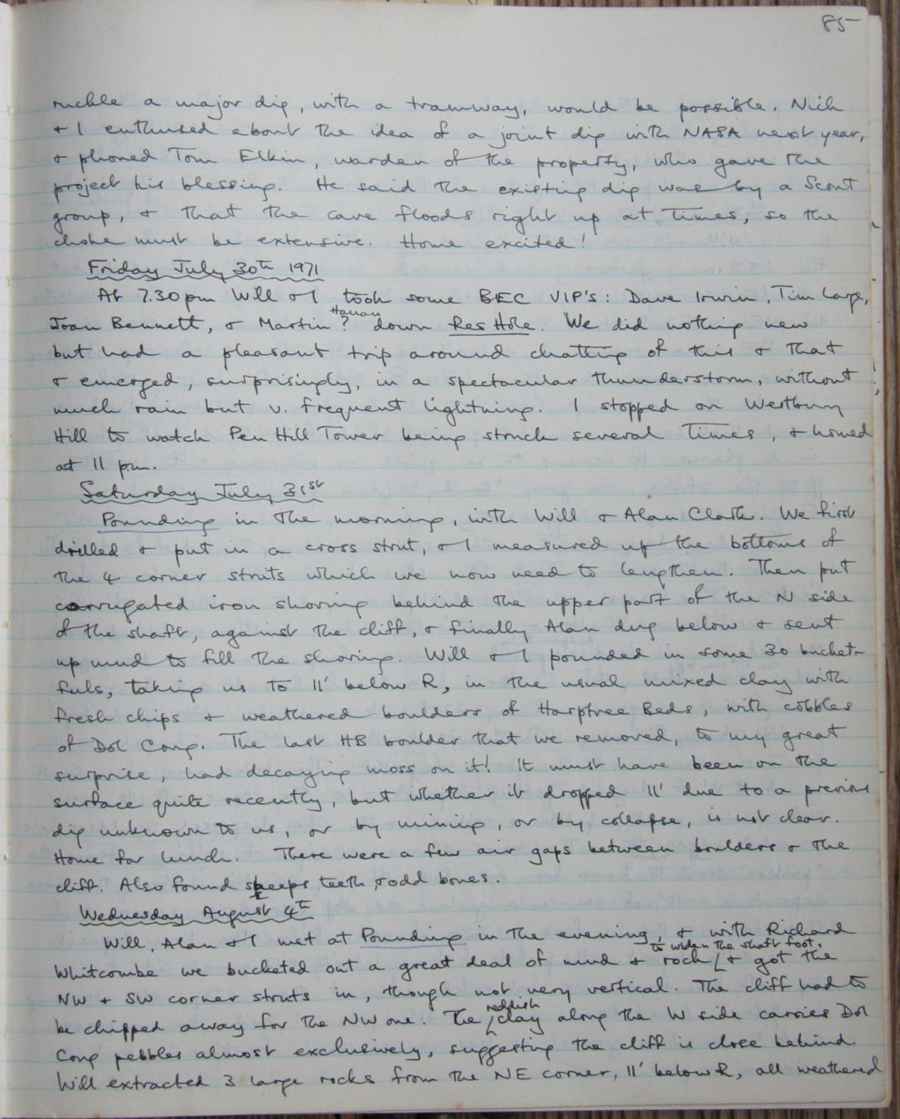 85
ruckle a major dig, with a tramway, would be possible. Nich
& I enthused about the idea of a joint dig with NASA next year,
& phoned Tom Elkin, warden of the property, who gave the
project his blessing. He said the existing dig was by a Scout
group, & that the cave floods right up at times, so the
choke must be extensive. Home excited!
Friday July 30th 1971
At 7.30pm Will & I took some BEC VIP's: Dave Irwin, Tim Large,
Joan Bennett, & Martin ? down Res Hole. We did nothing new
but had a pleasant trip around chatting of this & that
& emerged, surprisingly, in a spectacular thunderstorm, without
much rain but v. frequent lightning. I stopped on Westbury
Hill to watch Pen Hill Tower being struck several times, & homed
at 11 pm.
Saturday July 31st
Pounding in the morning, with Will & Alan Clark. We first
drilled & put in a cross strut, & I measured up the bottoms of
the 4 corner struts which we now need to lengthen. Then put
corrugated iron shoring behind the upper part of the N side
of the shaft, against the cliff, & finally Alan dug below & sent
up mud to fill the shoring. Will & I pounded in some 30 bucket-
fuls, taking us to 11' below R, in the usual mixed clay with
fresh chips & weathered boulders of Harptree Beds, with cobbles
of Dol Cong. The last HB boulder that we removed, to my great
surprise, had decaying moss on it! It must have been on the
surface quite recently, but whether it dropped 11' due to a previous
dig unknown to us, or by mining, or by collapse, is not clear.
Home for lunch. There were a few air gaps between boulders & the
cliff. Also found sheeps teeth & odd bones.
Wednesday August 4th
Will, Alan & I met at Pounding in the evening, & with Richard
to widen the shaft foot,
Whitcombe we bucketed out a great deal of mud & rock & got the
NW & SW corner struts in, though not very vertical. The cliff had to
be chipped away for the NW one. The reddish clay along the W side carries Dol
Cong pebbles almost exclusively, suggesting the cliff is close behind.
Will extracted 3 large rocks from the NE corner, 11' below R, all weathered